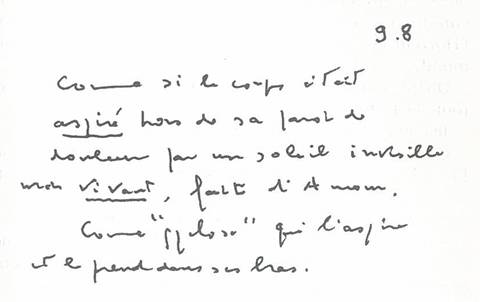 9.8
Comme si le corps était
aspiré hors de sa paroi de
douleur par un soleil invisible
mais vivant, fait d'Amour.
Comme qui l'aspire
et le prend dans ses bras.